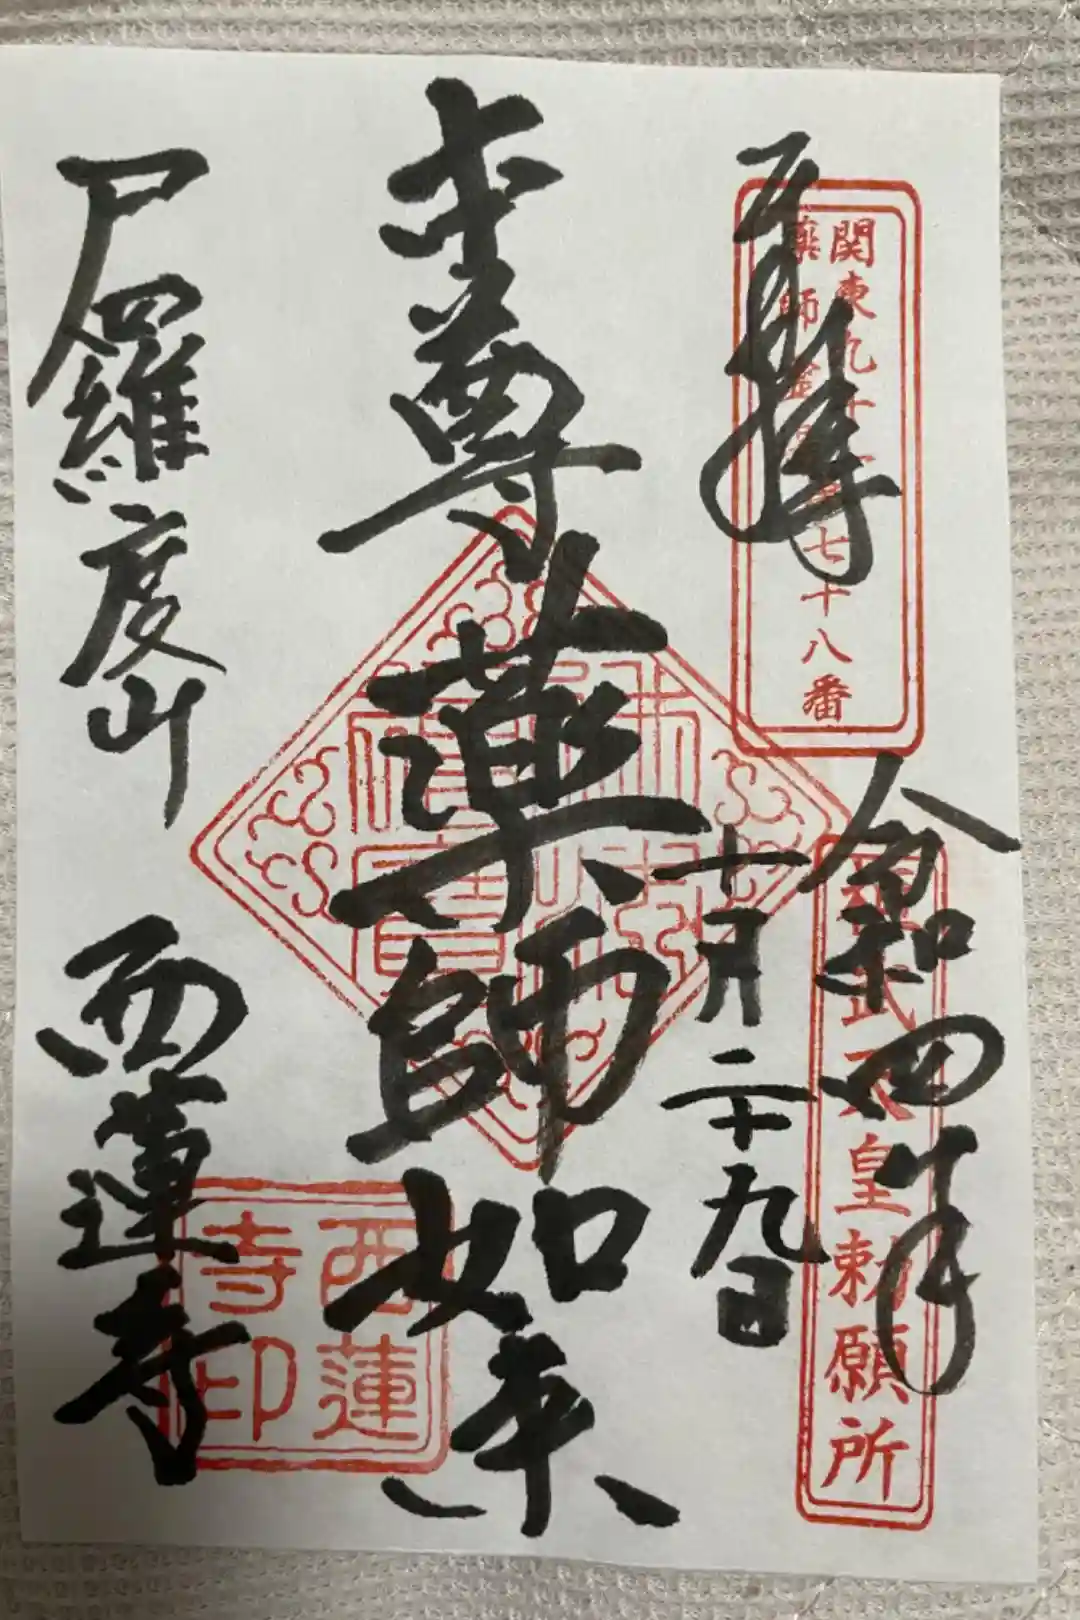 奉拝
関東九十一
薬師霊場
七十八番
令和四年
十月二十九日
武天皇勅願所
本尊
薬師如来
佛法
僧寳
尸羅度山
西蓮寺
西蓮
寺印